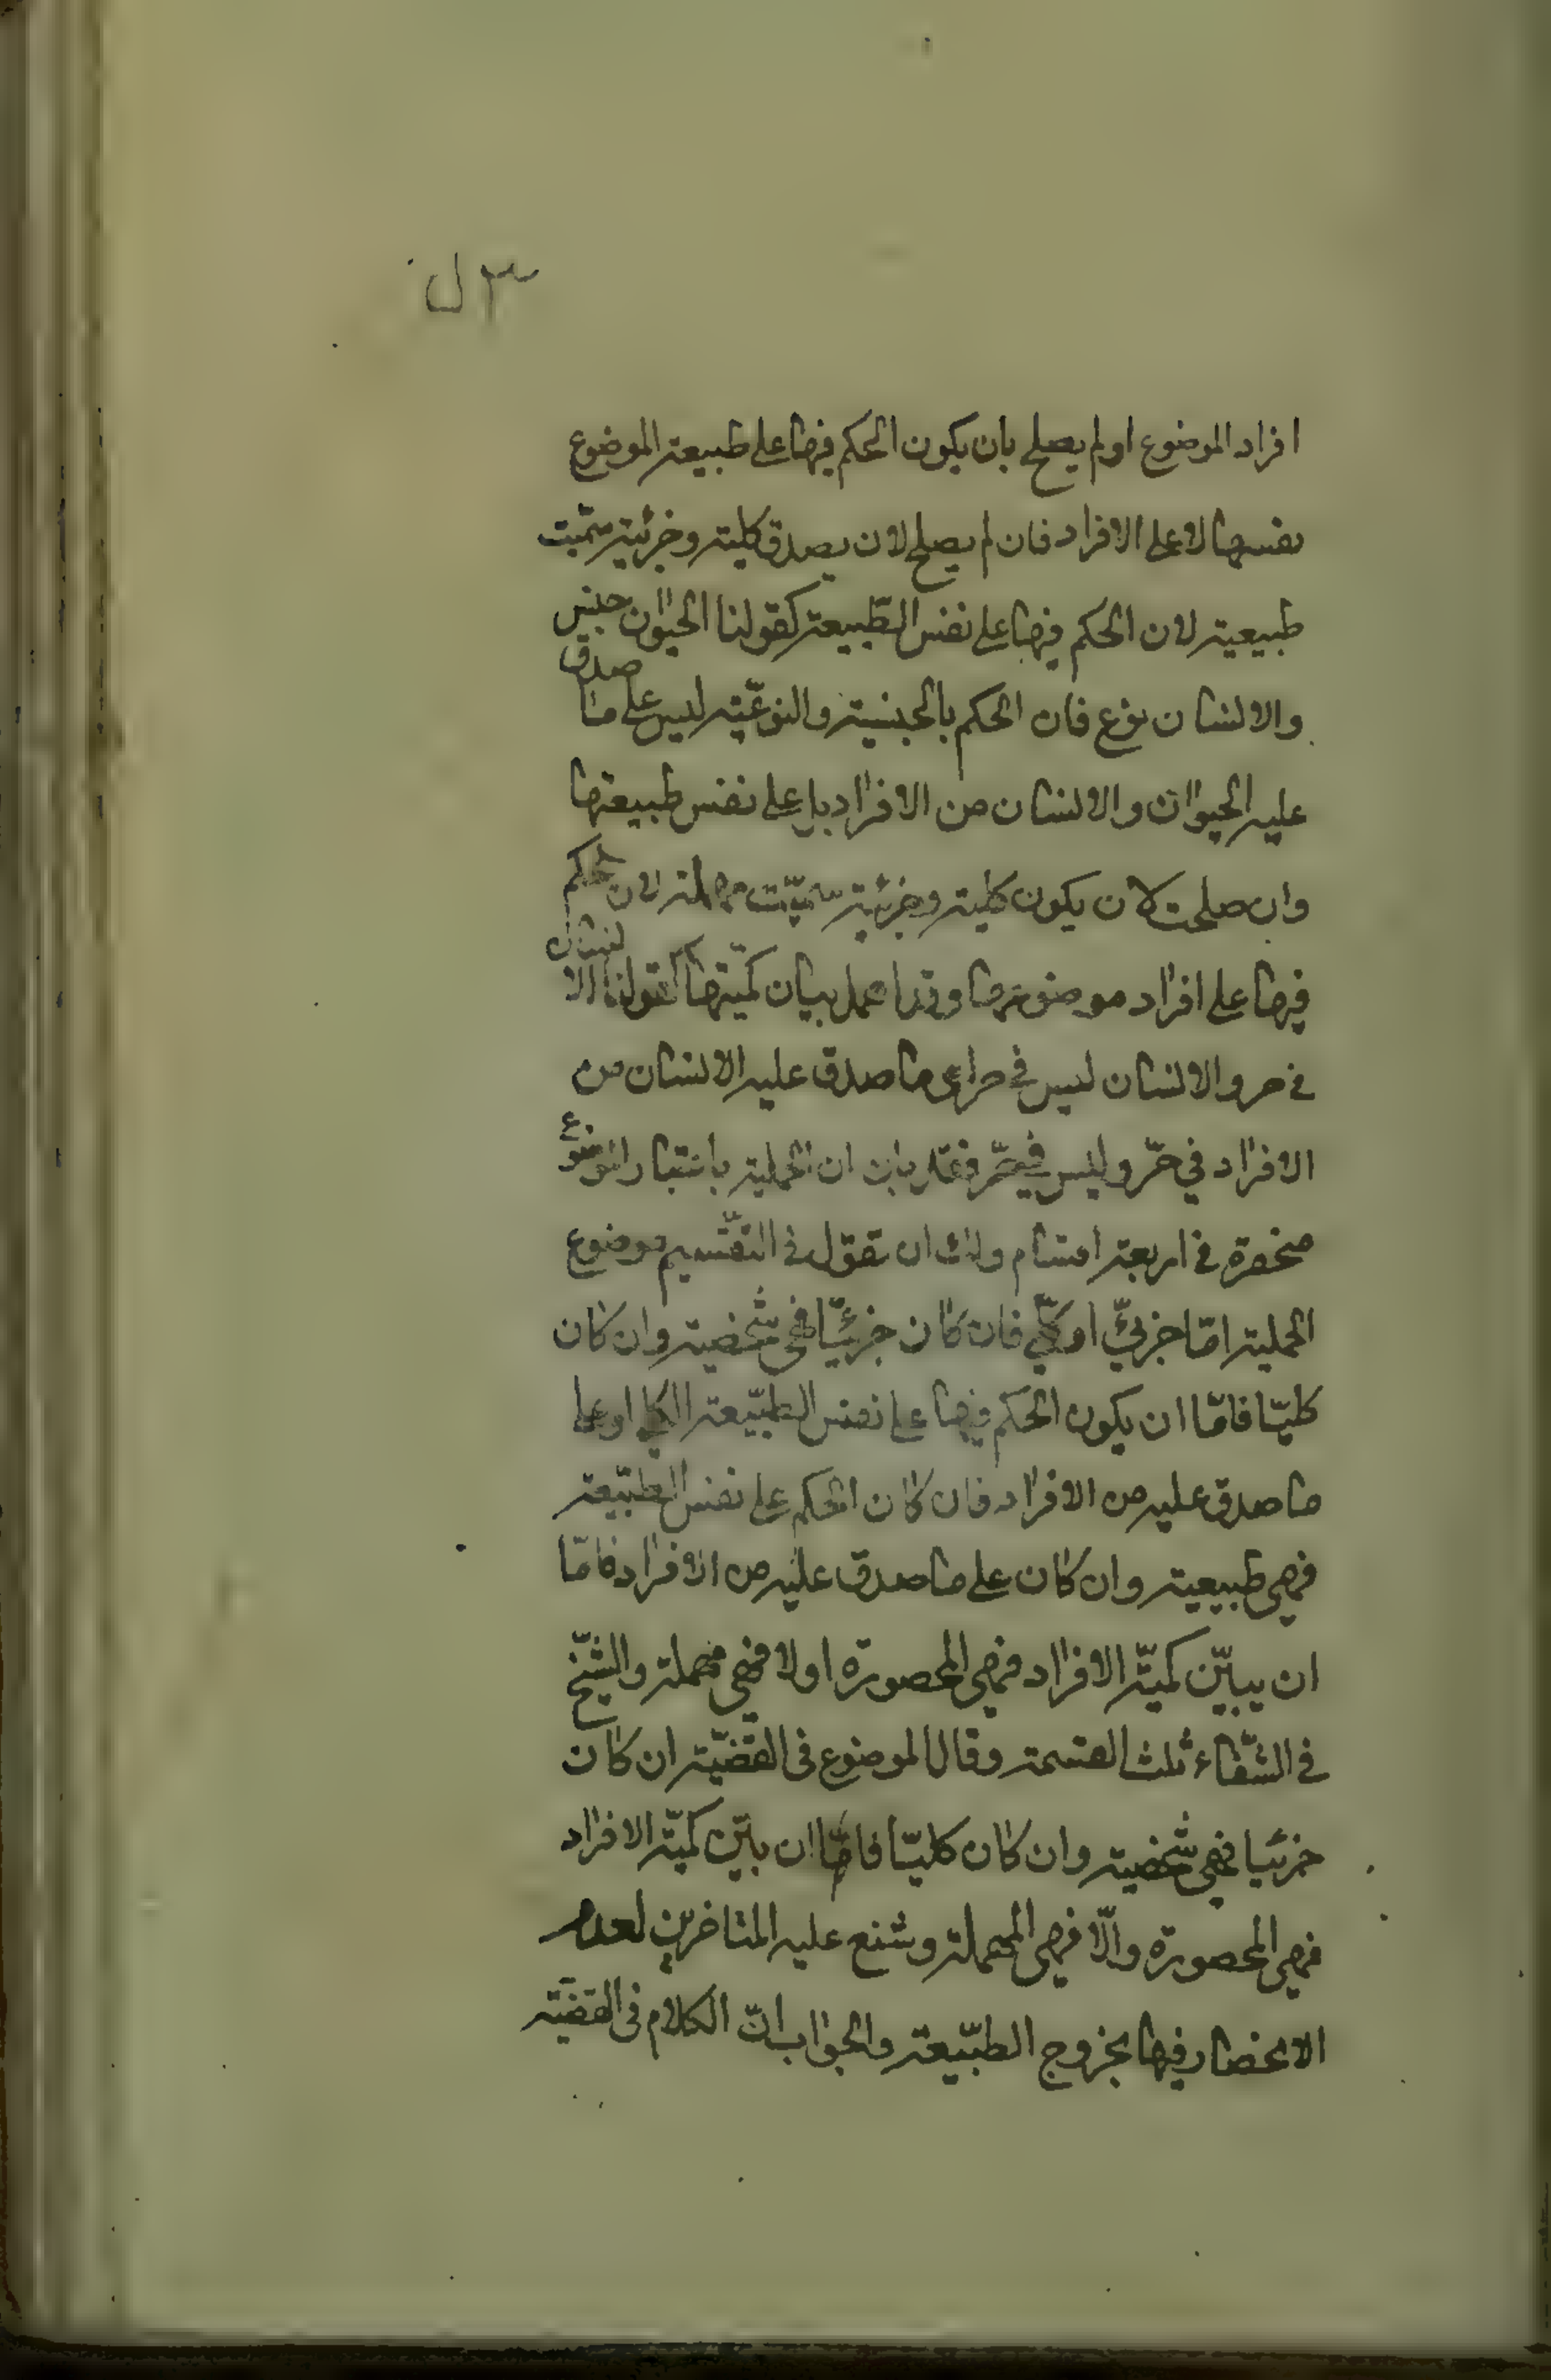 ٣ ل
افراد الموضوع او لم يصلح بان يكون الحكم فيها على طبيعة الموضوع
نفسها لا على الافراد فان لم يصلح لان يصدق كلية وجزئية سميت
طبيعية لان الحكم فيها على نفس الطبيعة كقولنا الحيوان جنس
والانسان نوع فان الحكم بالجنسية والنوعية ليس على ما صدق
عليه الحيوان والانسان من الافراد بل على نفس طبيعتها
وان صلحت لان يكون كلية وجزئية سميت مهملة لان الحكم
فيها على افراد موضوعها وقد اهمل بيان كميتها كقولنا الانسان
في خسر والانسان ليس في خسر اى ما صدق عليه الانسان من
الافراد في خسر وليس في خسر فقد بان ان الحملية باعتبار الموضوع
منحصرة في اربعة اقسام ولك ان تقول في التقسيم موضوع
الحملية امّا جزئيّ او كلّي فان كان جزئيّا فهي شخصية وان كان
كليّا فامّا ان يكون الحكم فيها على نفس الطبيعة الكلي او على
ما صدق عليه من الافراد فان كان الحكم على نفس الطبيعة
فهي طبيعية وان كان على ما صدق عليه من الافراد فامّا
ان يبيّن كميّة الافراد فهي المحصورة او لا فهي مهملة والشيخ
في الشفاء ثلث القسمة وقال الموضوع في القضيّة ان كان
جزئيا فهي شخصية وان كان كليّا فامّا ان بيّن كميّة الافراد
فهي المحصورة والّا فهي المهملة وشنع عليه المتاخرين لعدم
الانحصار فيها بخروج الطبيعة والجواب انّ الكلام في القضيّة